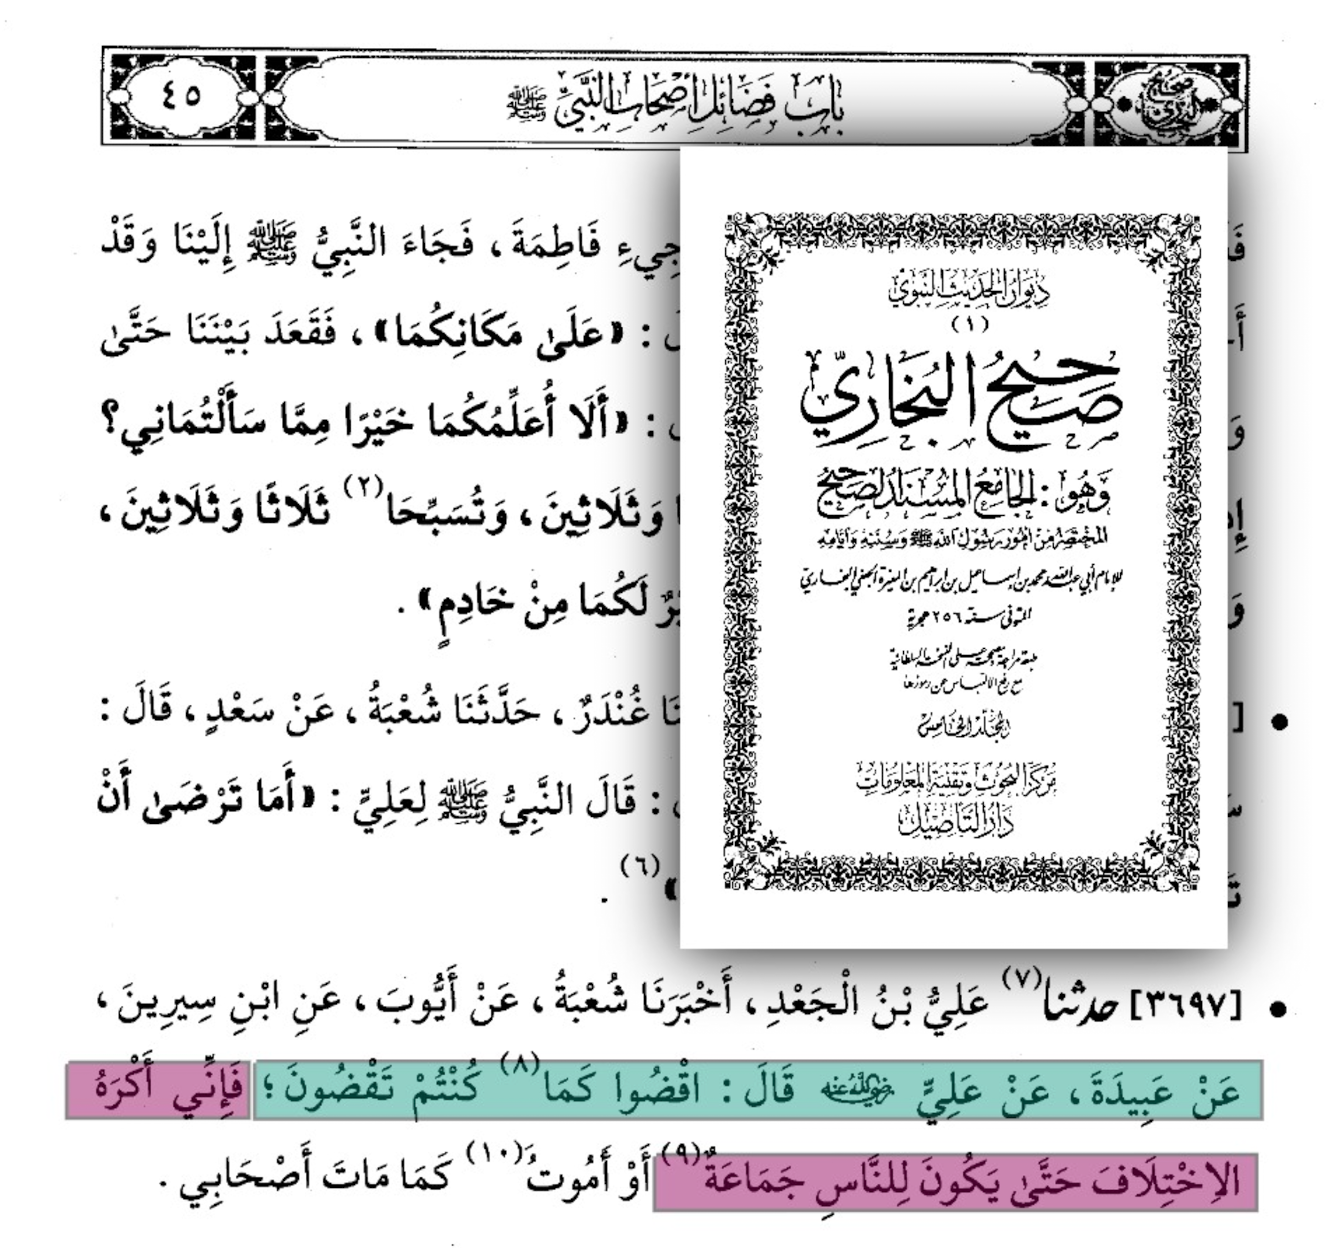 باب فضائل أصحاب النبي ﷺ
٤٥
جِيءِ فَاطِمَةَ ، فَجَاءَ النَّبِيُّ ﷺ إِلَيْنَا وَقَدْ
: «عَلَىٰ مَكَانِكُمَا» ، فَقَعَدَ بَيْنَنَا حَتَّىٰ
: «أَلَا أُعَلِّمُكُمَا خَيْرًا مِمَّا سَأَلْتُمَانِي؟
وَثَلَاثِينَ ، وَتُسَبِّحَا(٢) ثَلَاثًا وَثَلَاثِينَ ،
لَكُمَا مِنْ خَادِمٍ» .
غُنْدَرٌ ، حَدَّثَنَا شُعْبَةُ ، عَنْ سَعْدٍ ، قَالَ :
: قَالَ النَّبِيُّ ﷺ لِعَلِيٍّ : «أَمَا تَرْضَىٰ أَنْ
»(٦) .
ديوان الحديث النبوي
(١)
صحيح البخاري
وهو : الجامع المسند الصحيح
المختصر من أمور رسول الله ﷺ وسننه وأيامه
للإمام أبي عبد الله محمد بن إسماعيل بن إبراهيم بن المغيرة الجعفي البخاري
المتوفى سنة ٢٥٦ هجرية
طبعة مراجعة ومصححة على النسخة السلطانية
مع رفع الالتباس عن رموزها
المجلد الخامس
مركز البحوث وتقنية المعلومات
دار التأصيل
• [٣٦٩٧] حدثنا(٧) عَلِيُّ بْنُ الْجَعْدِ ، أَخْبَرَنَا شُعْبَةُ ، عَنْ أَيُّوبَ ، عَنِ ابْنِ سِيرِينَ ،
عَنْ عَبِيدَةَ ، عَنْ عَلِيٍّ رضي الله عنه قَالَ : اقْضُوا كَمَا(٨) كُنْتُمْ تَقْضُونَ ؛ فَإِنِّي أَكْرَهُ
الِاخْتِلَافَ حَتَّىٰ يَكُونَ لِلنَّاسِ جَمَاعَةٌ(٩) أَوْ أَمُوتُ(١٠) كَمَا مَاتَ أَصْحَابِي .